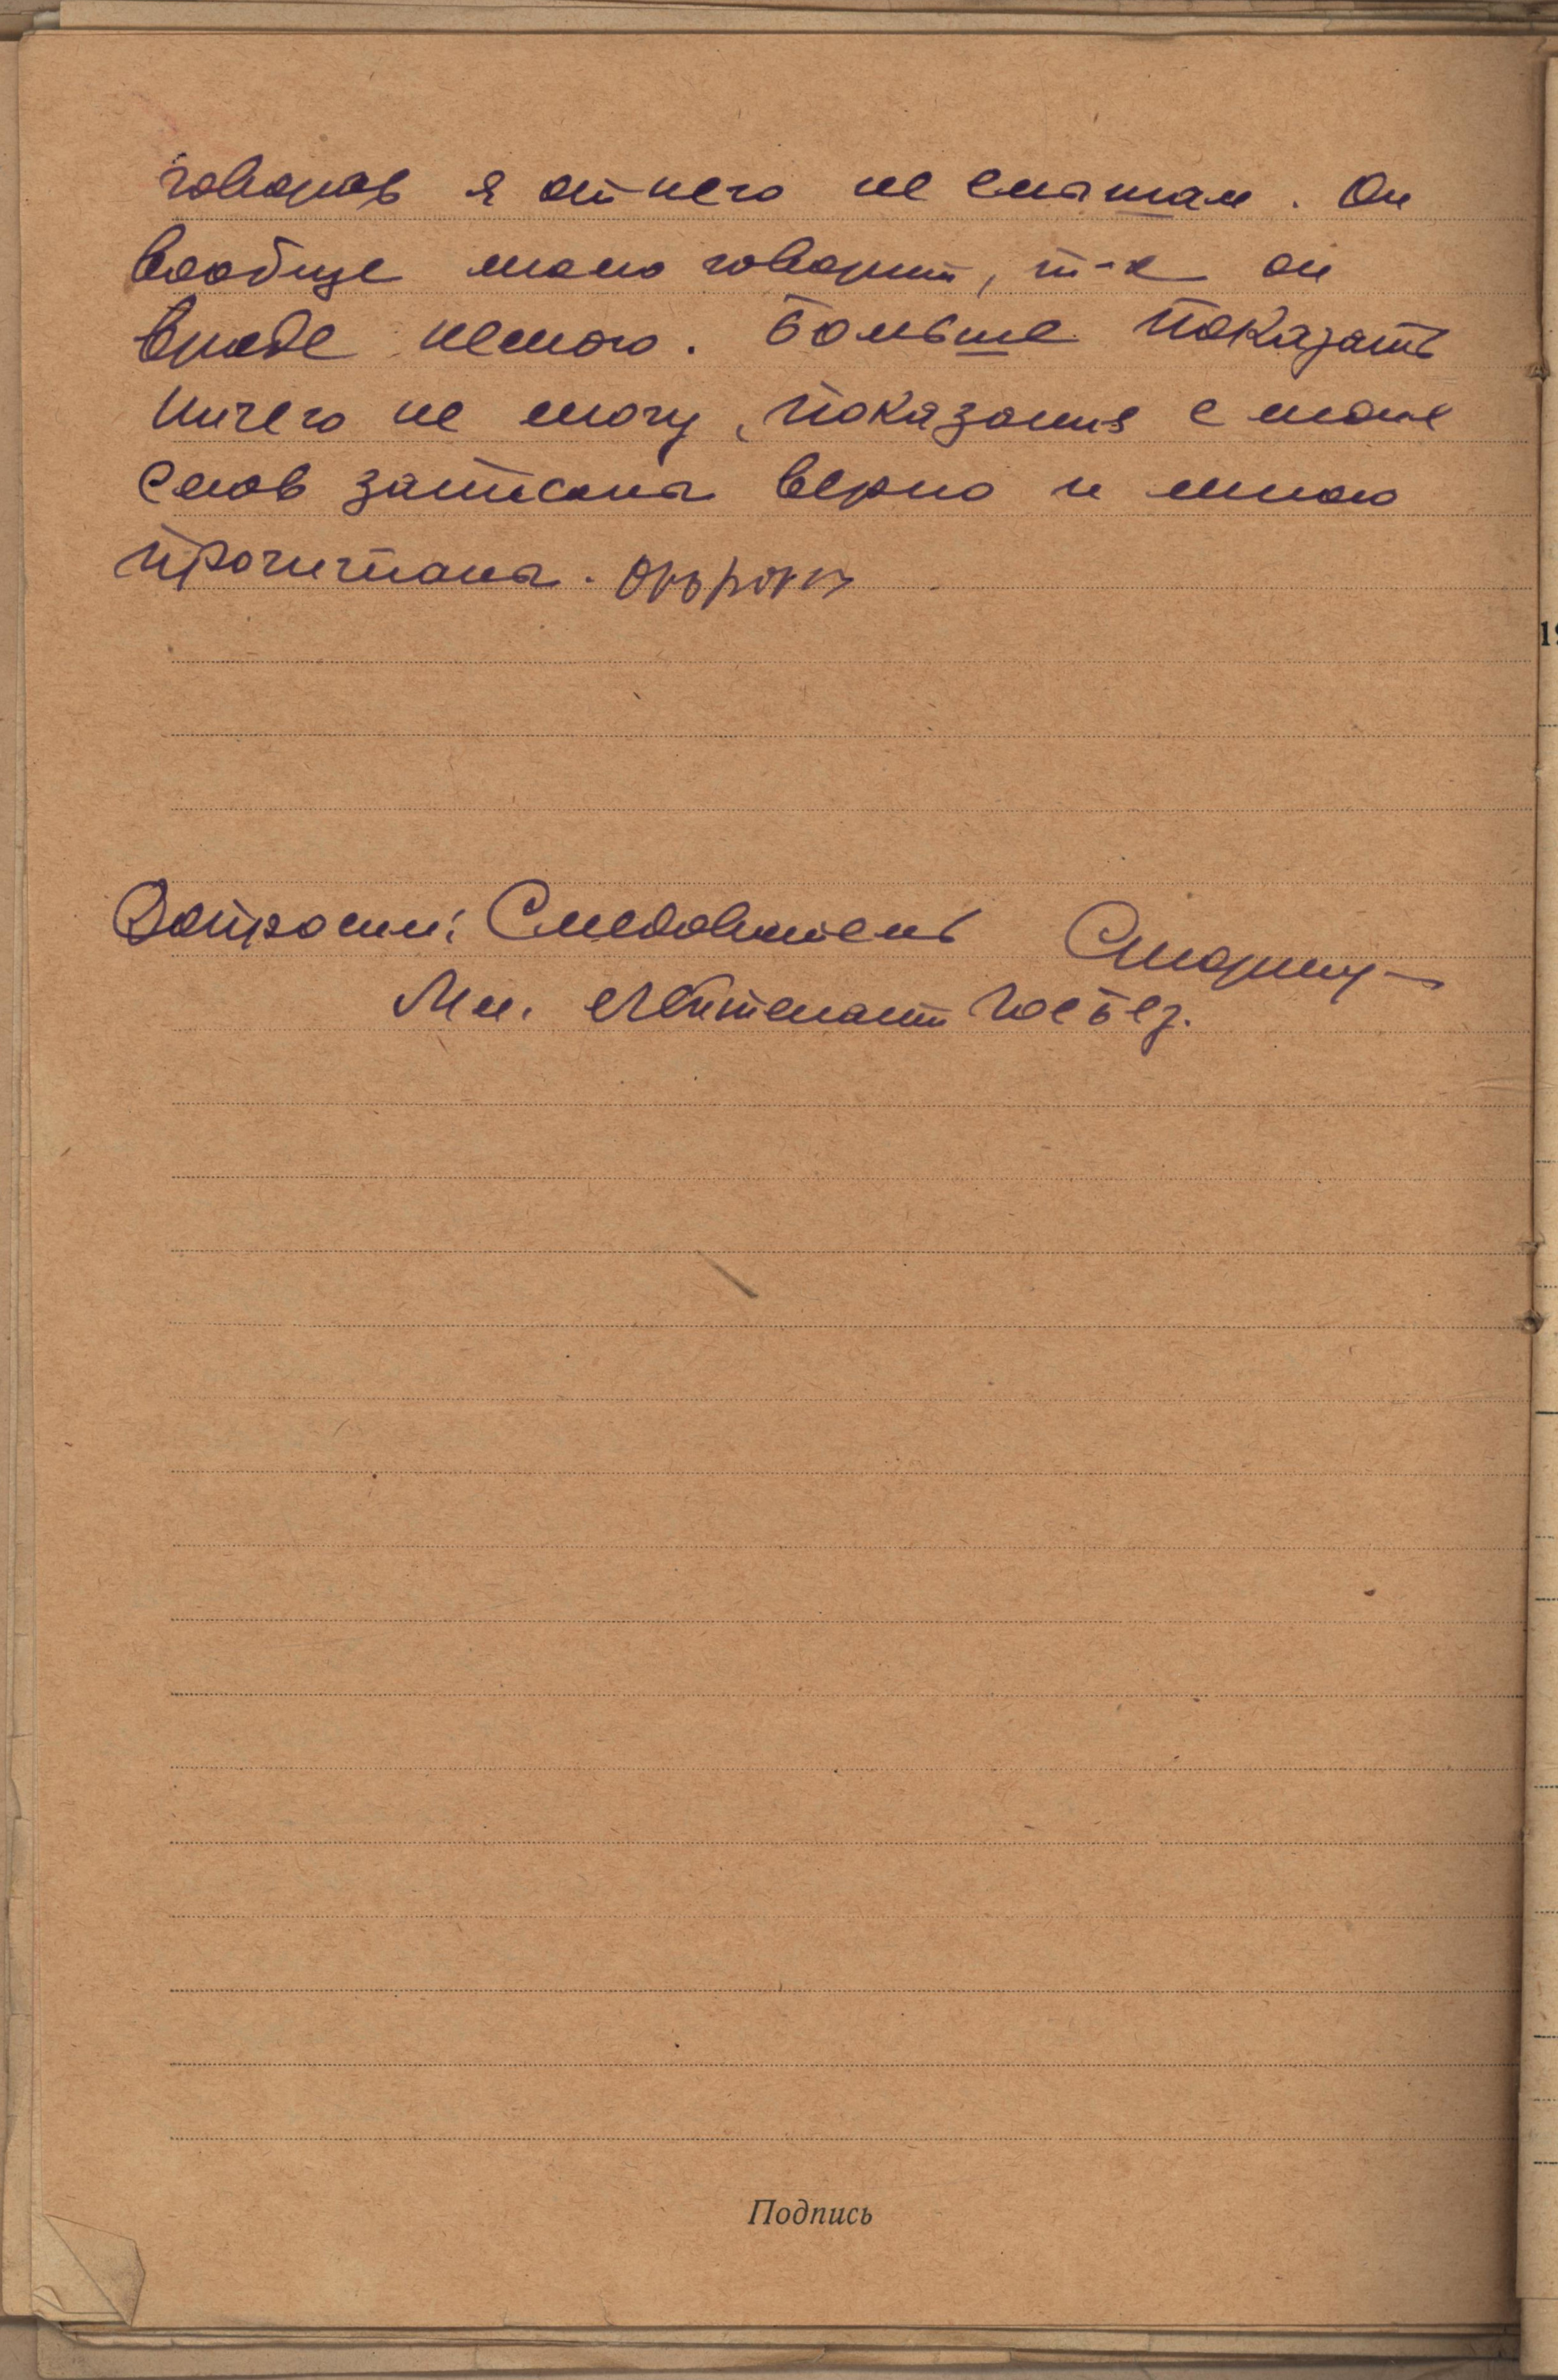 говоров я от него не слышал. Он
вообще мало говорит, т-к он
вроде немого. Больше показать
ничего не могу, показания с моие
слов записаны верно и мною
прочитаны.
Допросил: Следователь
Мл. лейтенант Госбез.
Подпись